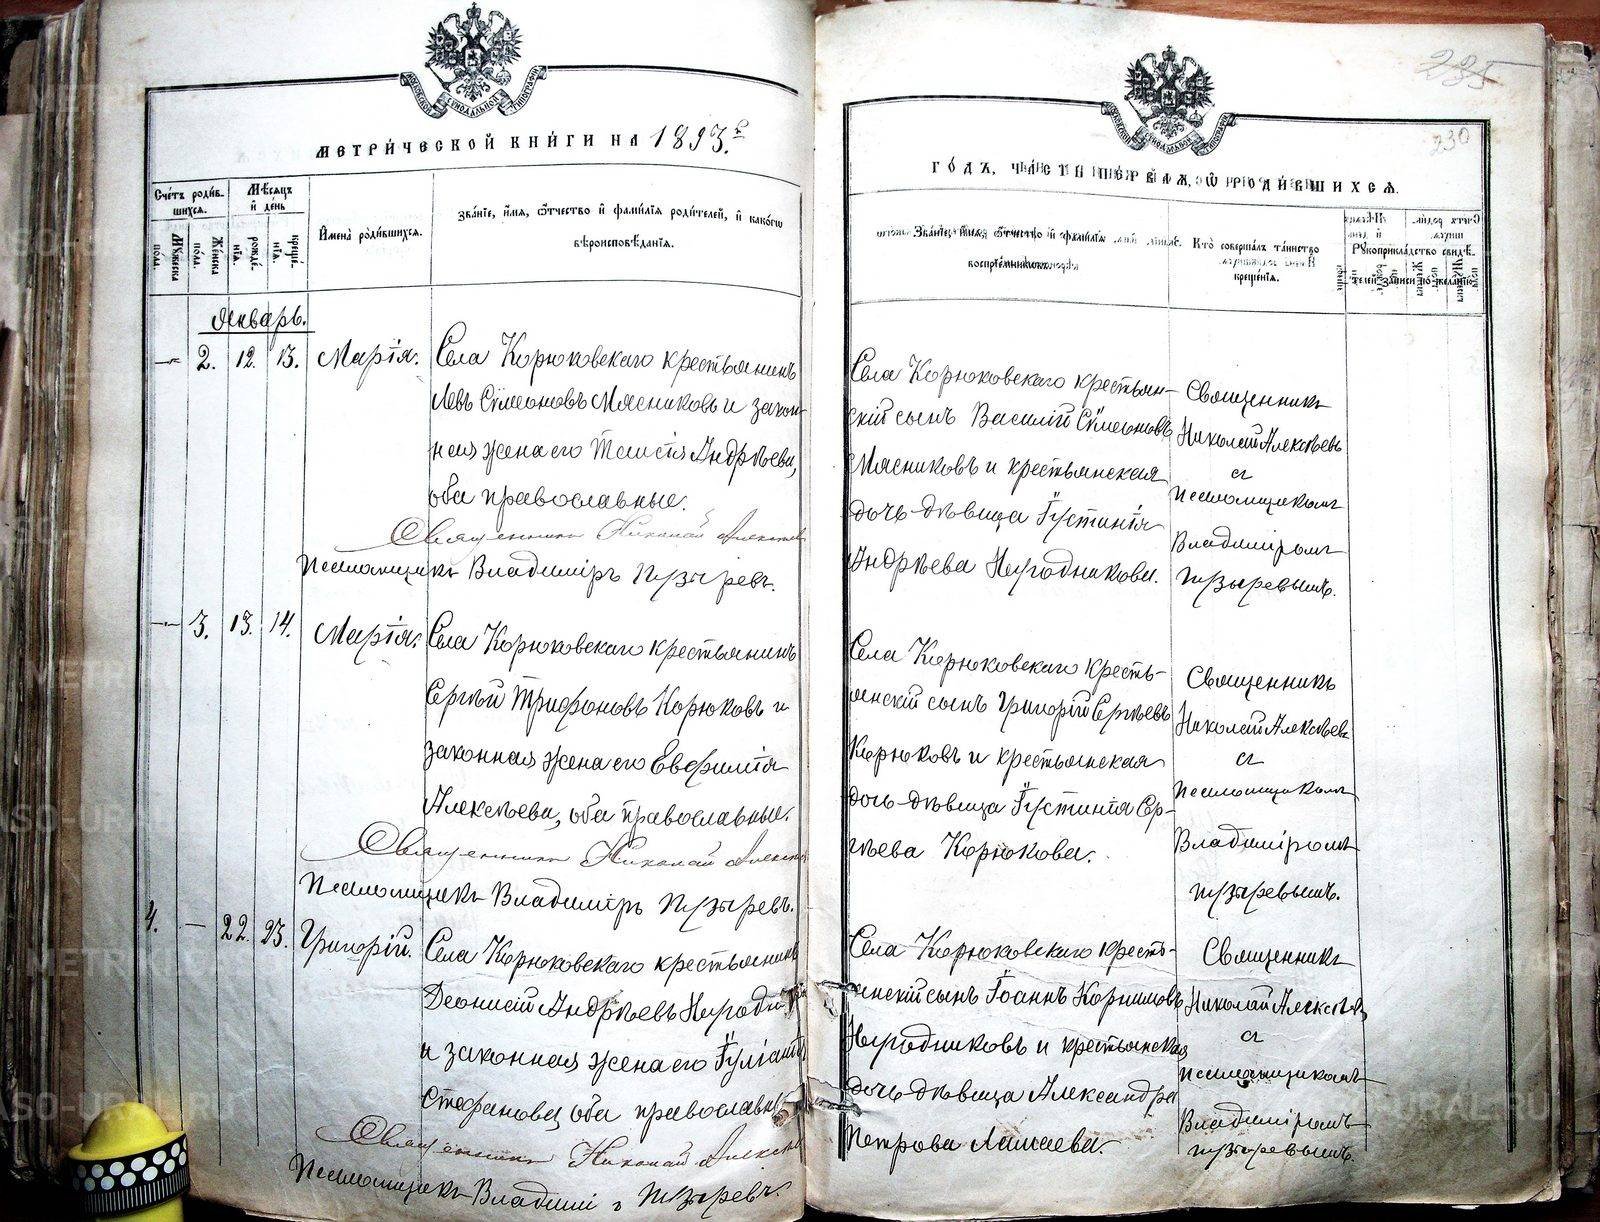 МОСКОВСКОЙ СѴНОДАЛЬНОЙ ТИПОГРАФІИ
МЕТРИ́ЧЕСКОЙ КНИ́ГИ НА 1893.г
Сче́тъ роди́в-
шихся.
Мѣ́сяцъ
и҆ де́нь
Му́жеска по́ла.
Же́нска по́ла.
рожде́нія.
креще́нія.
И҆мена̀ роди́вшихся.
Зва́ніе, и҆́мя, ѻ҆́тчество и҆ фами́лія роди́телей, и҆ како́гѡ
вѣроисповѣ́данія.
Январь.
— 2. 12. 13. Марія. Села Корюковскаго крестьянинъ
Левъ Сѵмеоновъ Мясниковъ и закон-
ная жена его Таисія Андрѣева,
оба православные.
Священникъ Николай Алексѣевъ
Псаломщикъ Владиміръ Пузыревъ.
— 3. 13. 14. Марія. Села Корюковскаго крестьянинъ
Сергѣй Трифоновъ Корюковъ и
законная жена его Евфимія
Алексѣева, оба православные.
Священникъ Николай Алексѣевъ
Псаломщикъ Владиміръ Пузыревъ.
4. — 22. 23. Григорій. Села Корюковскаго крестьянинъ
Деонисій Андрѣевъ
и законная жена его Іуліанія
Стефанова, оба православные
Священникъ Николай Алексѣевъ
Псаломщикъ Владимі г Пузыревъ.
235
230
МОСКОВСКОЙ СѴНОДАЛЬНОЙ ТИПОГРАФІИ
ГО́ДЪ, ЧА́СТЬ ПЕ́РВАЯ, Ѡ҆ РОДИ́ВШИХСЯ.
Зва́ніе, и҆́мя, ѻ҆́тчество и҆ фами́лія
воспріе́мникѡвъ.
Кто̀ соверша́лъ та́инство
креще́нія.
Рꙋкоприкла́дство свидѣ́-
телей за́писи по жела́нію.
Села Корюковскаго крестьян-
скій сынъ Василій Сѵмеоновъ
Мясниковъ и крестьянская
дочь-дѣвица Іустинія
Андрѣева Народникова.
Священникъ
Николай Алексѣевъ
съ
псаломщикомъ
Владиміромъ
Пузыревымъ.
Села Корюковскаго кресть-
янскій сынъ Григорій Сергѣевъ
Корюковъ и крестьянская
дочь-дѣвица Іустинія Сер-
гѣева Корюкова.
Священникъ
Николай Алексѣевъ
съ
псаломщикомъ
Владиміромъ
Пузыревымъ.
Села Корюковскаго кресть-
янскій сынъ Іоаннъ
Народниковъ и крестьянская
дочь-дѣвица Александра
Петрова
Священникъ
Николай Алексѣевъ
съ
псаломщикомъ
Владиміромъ
Пузыревымъ.